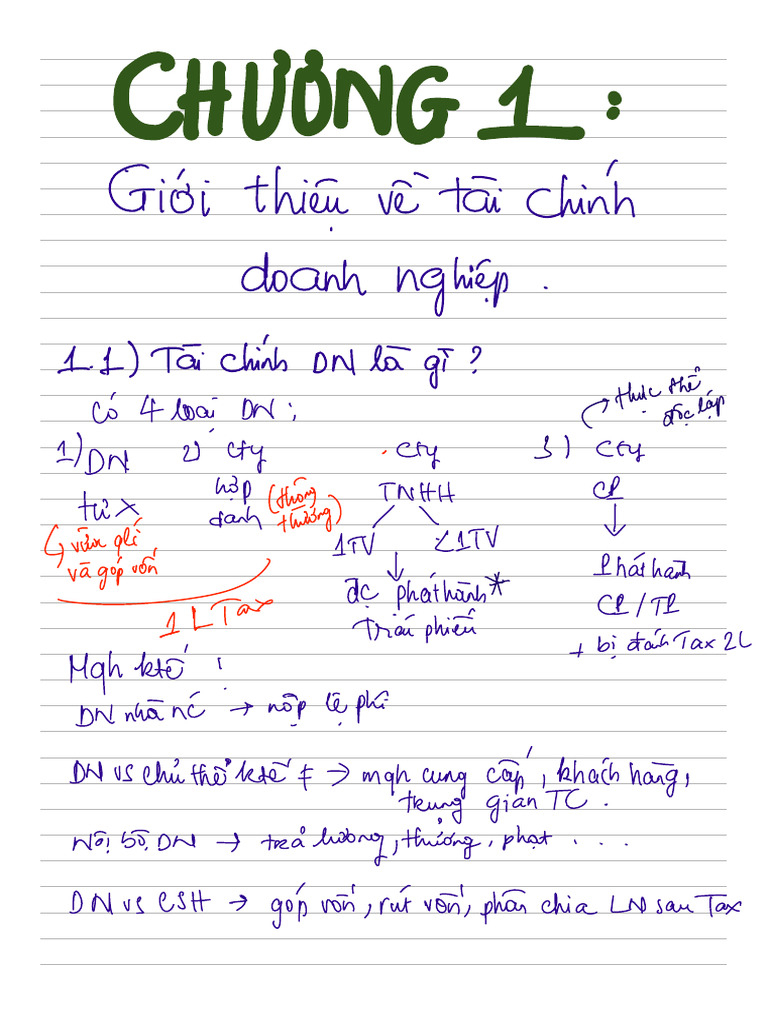 CHƯƠNG 1 :
Giới thiệu về tài chính
doanh nghiệp .
1.1) Tài chính DN là gì ?
Có 4 loại DN :
1) DN
tư
vừa qlí
và góp vốn
2) Cty
hợp
danh
(thông
thường)
1 L Tax
Cty
TNHH
1TV
<1TV
đc phát hành *
Trái phiếu
3) Cty
CP
→ thực thể
độc lập
Phát hành
CP / TP
+ bị đánh Tax 2L
Mqh ktế :
DN nhà nc → nộp lệ phí
DN vs chủ thể ktế ≠ → mqh cung cấp, khách hàng,
trung gian TC .
Nội bộ DN → trả lương, thưởng, phạt . . .
DN vs CSH → góp vốn, rút vốn, phân chia LN sau Tax